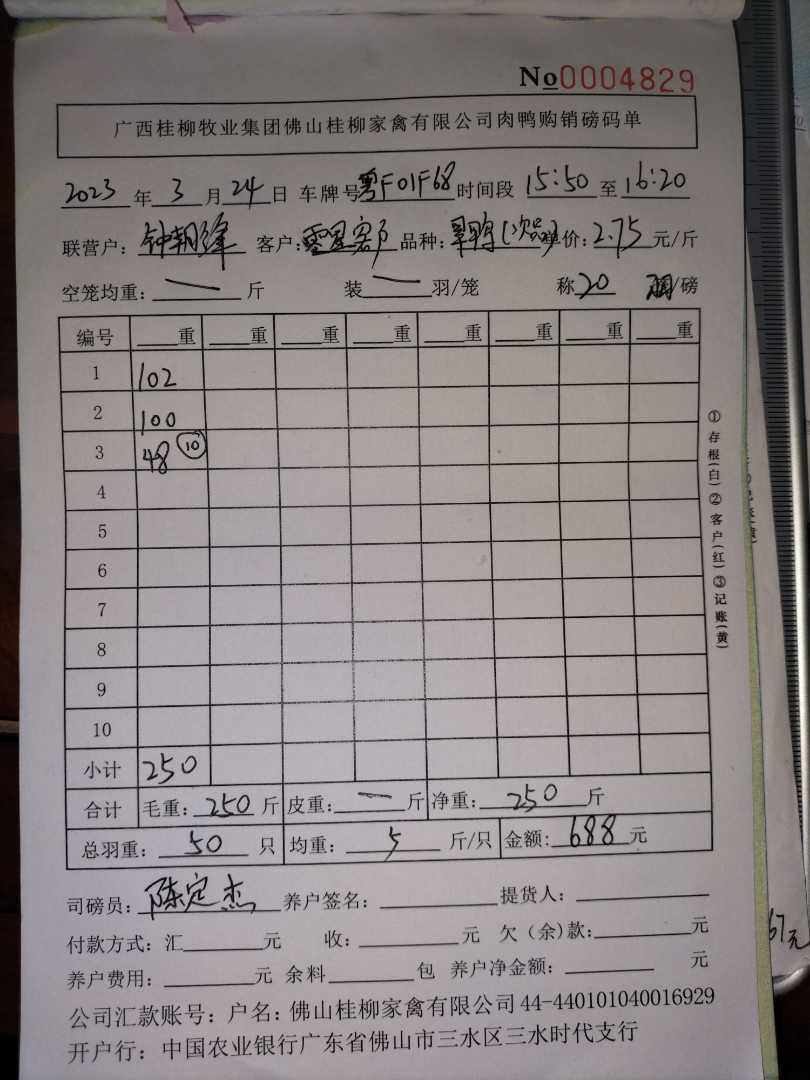 No0004829
广西桂柳牧业集团佛山桂柳家禽有限公司肉鸭购销磅码单
2023年3月24日 车牌号粤F01F68时间段15:50至16:20
联营户:钟朝锋 客户:零星客户 品种:鸭(次品)单价:2.75元/斤
空笼均重:一斤 装一羽/笼 称20 羽/磅
编号 重 重 重 重 重 重 重 重
1 102
2 100
3 48 ⑩
4
5
6
7
8
9
10
小计 250
合计 毛重:250斤 皮重:一斤 净重:250斤
总羽重:50只 均重:5斤/只 金额:688元
司磅员:陈定杰 养户签名: 提货人:
付款方式:汇 元 收: 元 欠(余)款: 元
养户费用: 元 余料 包 养户净金额: 元
公司汇款账号:户名:佛山桂柳家禽有限公司44-440101040016929
开户行:中国农业银行广东省佛山市三水区三水时代支行
①存根(白)②客户(红)③记账(黄)
67元